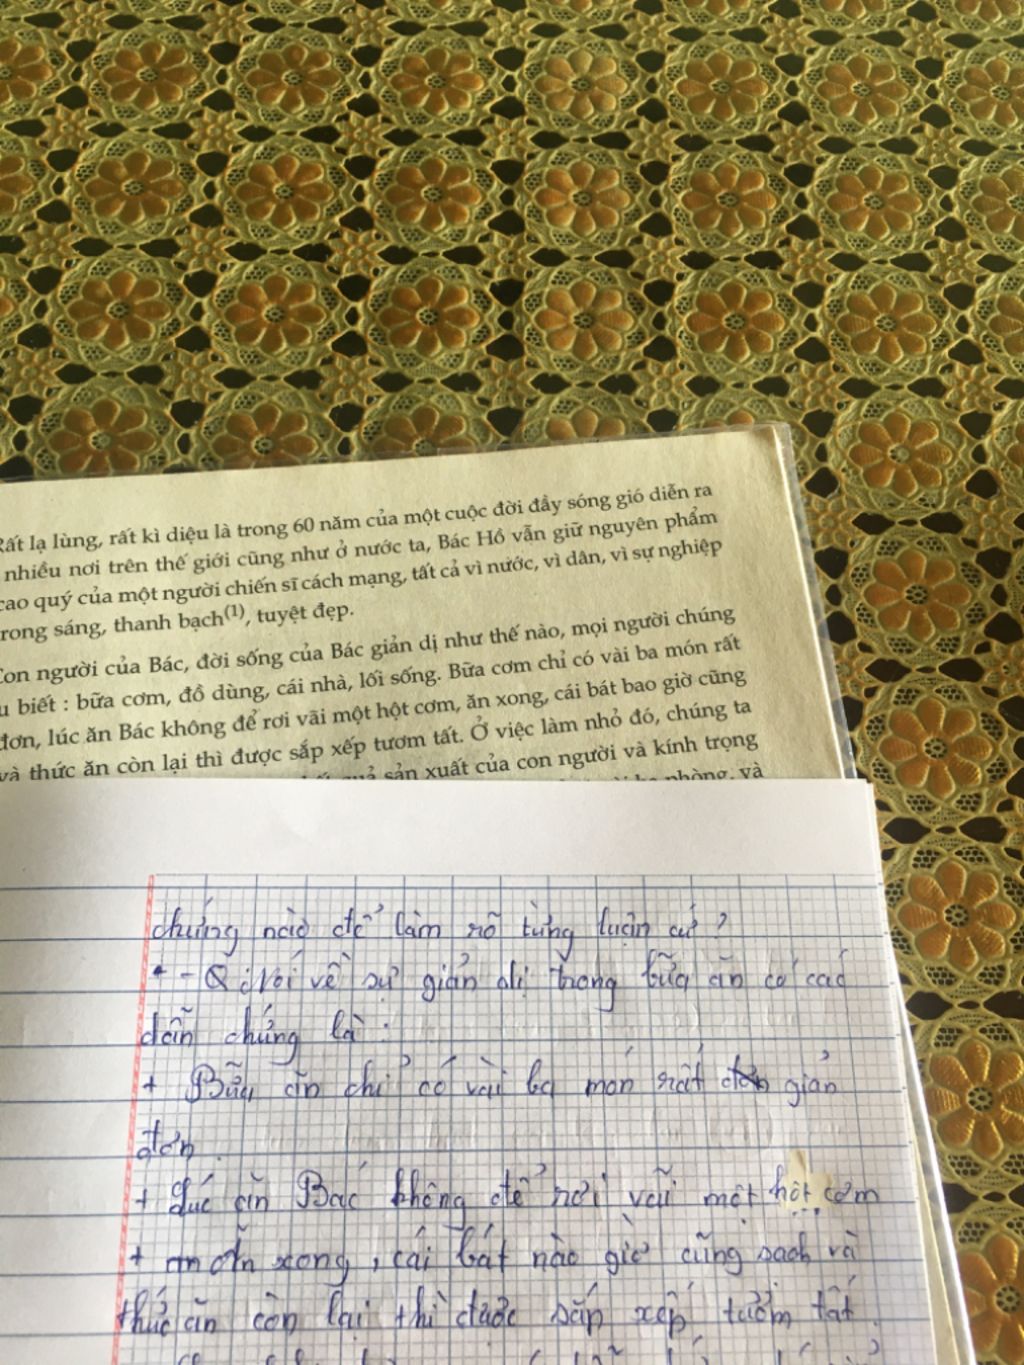 Rất lạ lùng, rất kì diệu là trong 60 năm của một cuộc đời đầy sóng gió diễn ra
nhiều nơi trên thế giới cũng như ở nước ta, Bác Hồ vẫn giữ nguyên phẩm
cao quý của một người chiến sĩ cách mạng, tất cả vì nước, vì dân, vì sự nghiệp
rong sáng, thanh bạch(1), tuyệt đẹp.
Con người của Bác, đời sống của Bác giản dị như thế nào, mọi người chúng
u biết : bữa cơm, đồ dùng, cái nhà, lối sống. Bữa cơm chỉ có vài ba món rất
đơn, lúc ăn Bác không để rơi vãi một hột cơm, ăn xong, cái bát bao giờ cũng
và thức ăn còn lại thì được sắp xếp tươm tất. Ở việc làm nhỏ đó, chúng ta
quả sản xuất của con người và kính trọng
phòng, và
chứng nào để làm rõ từng luận cứ ?
- Nói về sự giản dị trong bữa ăn có các
dẫn chứng là :
+ Bữa ăn chỉ có vài ba món rất giản
đơn.
+ Lúc ăn Bác không để rơi vãi một hột cơm
+ ăn xong, cái bát nào giờ cũng sạch và
thức ăn còn lại thì được sắp xếp tươm tất.